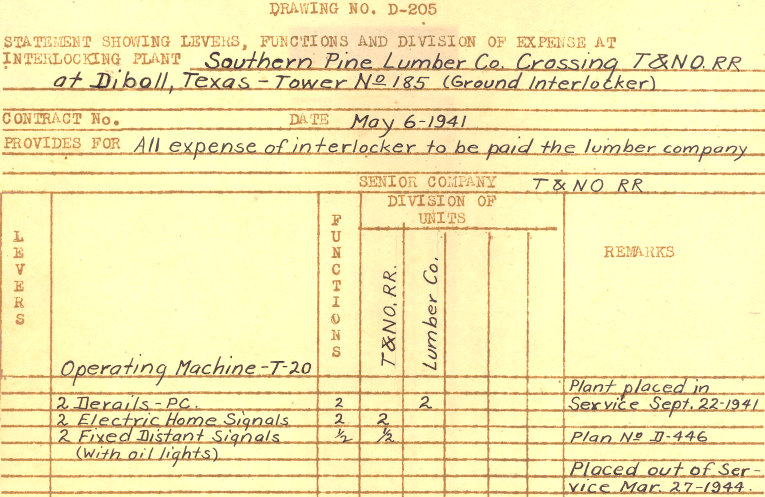 DRAWING NO. D-205
STATEMENT SHOWING LEVERS, FUNCTIONS AND DIVISION OF EXPENSE AT
INTERLOCKING PLANT Southern Pine Lumber Co. Crossing T&NO. RR
at Diboll, Texas - Tower Nº 185 (Ground Interlocker)
CONTRACT No. DATE May 6-1941
PROVIDES FOR All expense of interlocker to be paid the lumber company
SENIOR COMPANY T & NO RR
LEVERS
FUNCTIONS
DIVISION OF
UNITS
REMARKS
T&NO. RR.
Lumber Co.
Operating Machine-T-20
Plant placed in
2 Derails-PC. 2 2 Service Sept. 22-1941
2 Electric Home Signals 2 2
2 Fixed Distant Signals ½ ½ Plan Nº D-446
(With oil lights)
Placed out of Ser-
vice Mar. 27-1944.